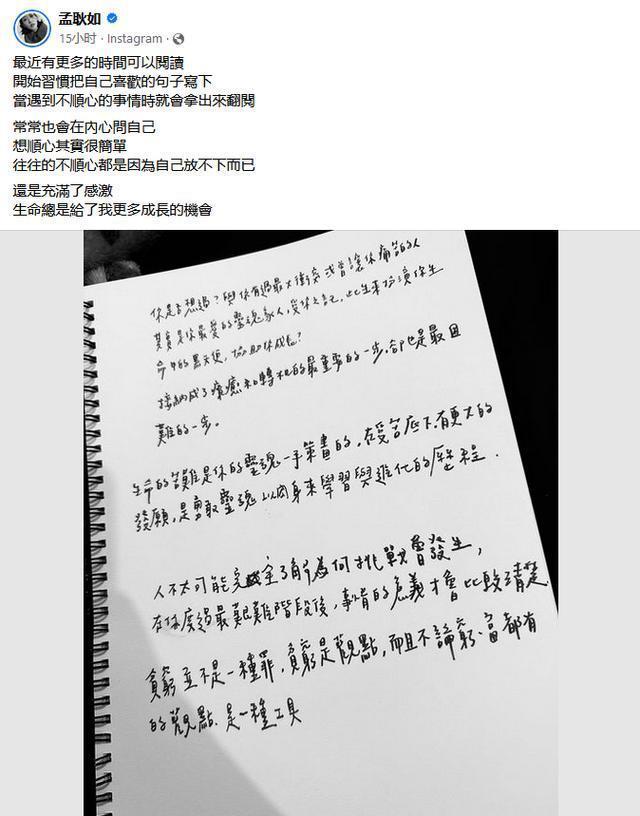 孟耿如
15小时 · Instagram ·
最近有更多的時間可以閱讀
開始習慣把自己喜歡的句子寫下
當遇到不順心的事情時就會拿出來翻閱
常常也會在內心問自己
想順心其實很簡單
往往的不順心都是因為自己放不下而已
還是充滿了感激
生命總是給了我更多成長的機會
你是否想過?與你有過最大衝突或曾讓你痛苦的人
其實是你最愛的靈魂家人,受你之託,此生來扮演你生
命中的黑天使,協助你成長?
接納成了療癒和轉化的最重要的一步,卻也是最困
難的一步。
生命的苦難是你的靈魂一手策畫的,在受苦底下有更大的
發願,是勇敢靈魂以肉身來學習與進化的歷程.
人不太可能完全了解為何挑戰會發生,
在你度過最艱難階段後,事情的意義才會比較清楚.
貧窮並不是一種罪,貧窮是觀點,而且不論窮、富都有
的觀點.是一種工具